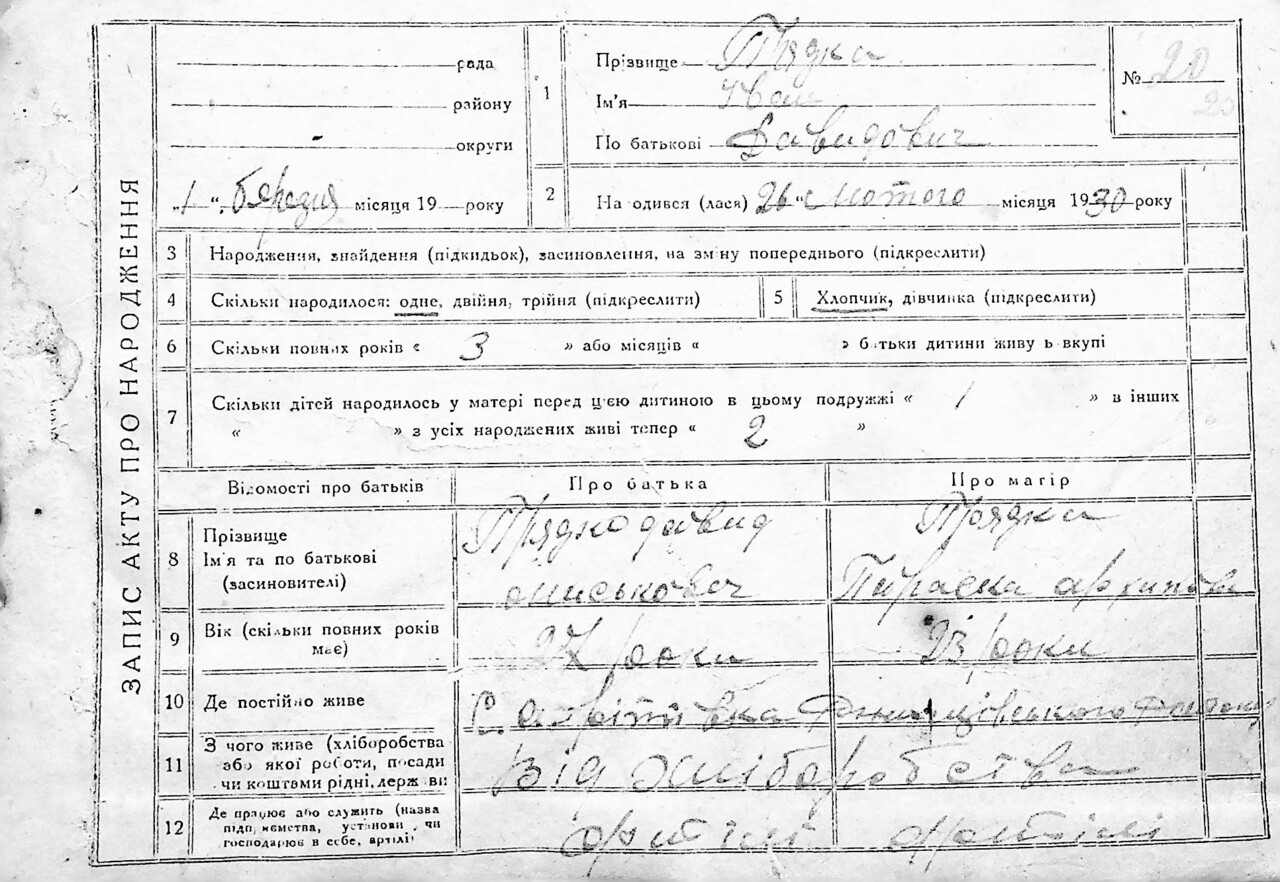 ЗАПИС АКТУ ПРО НАРОДЖЕННЯ
рада
району
округи
"1" березня місяця 19 року
1
Прізвище
Ім'я Іван
По батькові Давидович
№ 20
20
2
На одився (лася) 26 "лютого місяця 1930 року
3 Народження, знайдення (підкидьок), засиновлення, на зм ну попереднього (підкреслити)
4 Скільки народилося: одне, двійня, трійня (підкреслити)
5 Хлопчик, дівчинка (підкреслити)
6 Скільки повних років « 3 » або місяців « » батьки дитини живу ь вкупі
7 Скільки дітей народилось у матері перед ц'єю дитиною в цьому подружжі « 1 » в інших
« » з усіх народжених живі тепер « 2 »
Відомості про батьків Про батька Про матір
8 Прізвище
Ім'я та по батькові
(засиновителі)
давид
ониськович
Параска
9 Вік (скільки повних років
має)
27 роки
23 роки
10 Де постійно живе
с.
11 З чого живе (хліборобства
або якої роботи, посади
чи коштами рідні, держ ви
Від Хліборобства
12 Де працює або служить (назва
підп иємства, установи , чи
господарює в себе, артілі)
артілі артілі